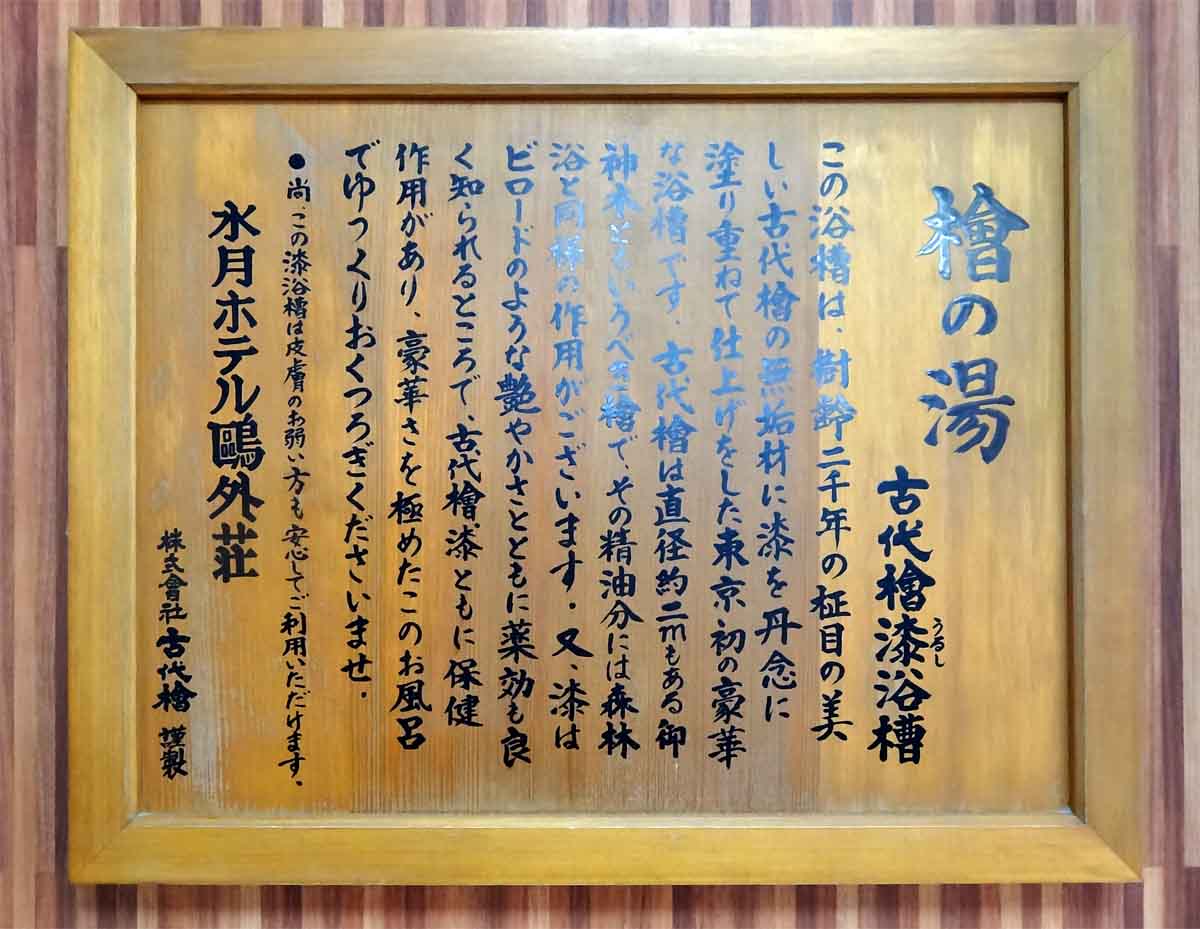 檜の湯
古代檜漆浴槽
うるし
この浴槽は、樹齢二千年の柾目の美
しい古代檜の無垢材に漆を丹念に
塗り重ねて仕上げをした東京初の豪華
な浴槽です。古代檜は直径約二mもある御
神木ともいうべき檜で、その精油分には森林
浴と同様の作用がございます。又、漆は
ビロードのような艶やかさとともに薬効も良
く知られるところで、古代檜、漆ともに保健
作用があり、豪華さを極めたこのお風呂
でゆっくりおくつろぎくださいませ。
●尚、この漆浴槽は皮膚のお弱い方も安心してご利用いただけます。
水月ホテル鷗外荘
株式會社 古代檜 謹製